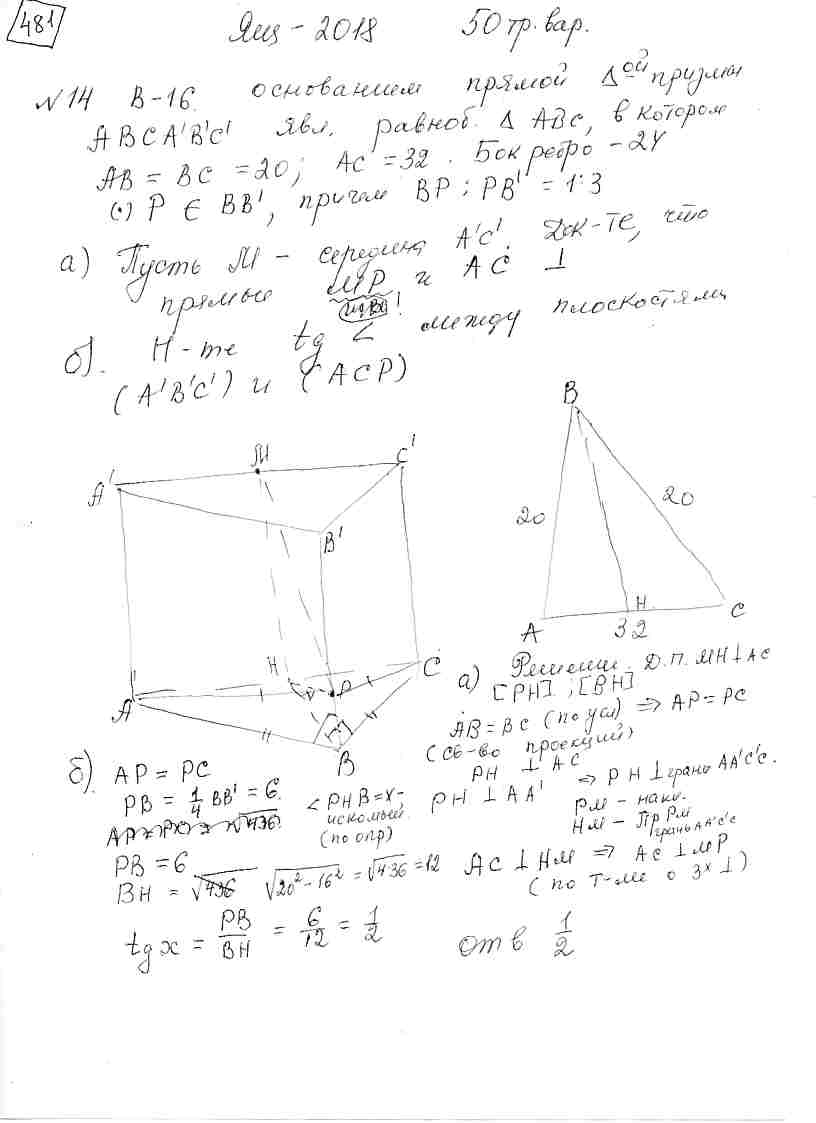 481
Ящ - 2018 50 тр. вар.
№14 В-16. основанием прямой Δой призмы
ABCA'B'C' явл. равноб. Δ ABC, в котором
AB = BC = 20; AC = 32. Бок ребро - 24
(·) P ∈ BB', причем BP : PB' = 1:3
а) Пусть M - середина A'C'. Док-те, что
прямые MP и AC ⊥
б). Н-те tg ∠ между плоскостями
(A'B'C') и (ACP)
A'
M
C'
B'
H
P
C
A
B
B
20
20
A
H
C
32
а) Решение. Д.П. MH ⊥ AC
[PH]; [BH]
AB = BC (по усл) ⇒ AP = PC
(св-во проекций)
PH ⊥ AC
PH ⊥ AA' ⇒ PH ⊥ грань AA'C'C.
PM - накл.
HM - Пр PM
грань AA'C'C
AC ⊥ HM ⇒ AC ⊥ MP
(по т-ме о 3х ⊥)
б) AP = PC
PB = 1/4 BB' = 6.
∠PHB = x -
искомый
(по опр)
PB = 6
BH = √436 √20² - 16² = √4·36 = 12
tg x = PB/BH = 6/12 = 1/2
Отв 1/2